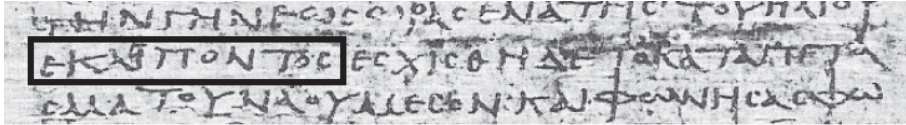 ΤΗΝ ΓΗΝ ΕΩϹ ΩΡΑϹ ΕΝΑΤΗϹ ΤΟΥ ΗΛΙΟΥ
ΕΚΛΙΠΟΝΤΟϹ ΕϹΧΙϹΘΗ ΔΕ ΤΟ ΚΑΤΑΠΕΤΑ
ϹΜΑ ΤΟΥ ΝΑΟΥ ΜΕϹΟΝ· ΚΑΙ ΦΩΝΗϹΑϹ ΦΩ